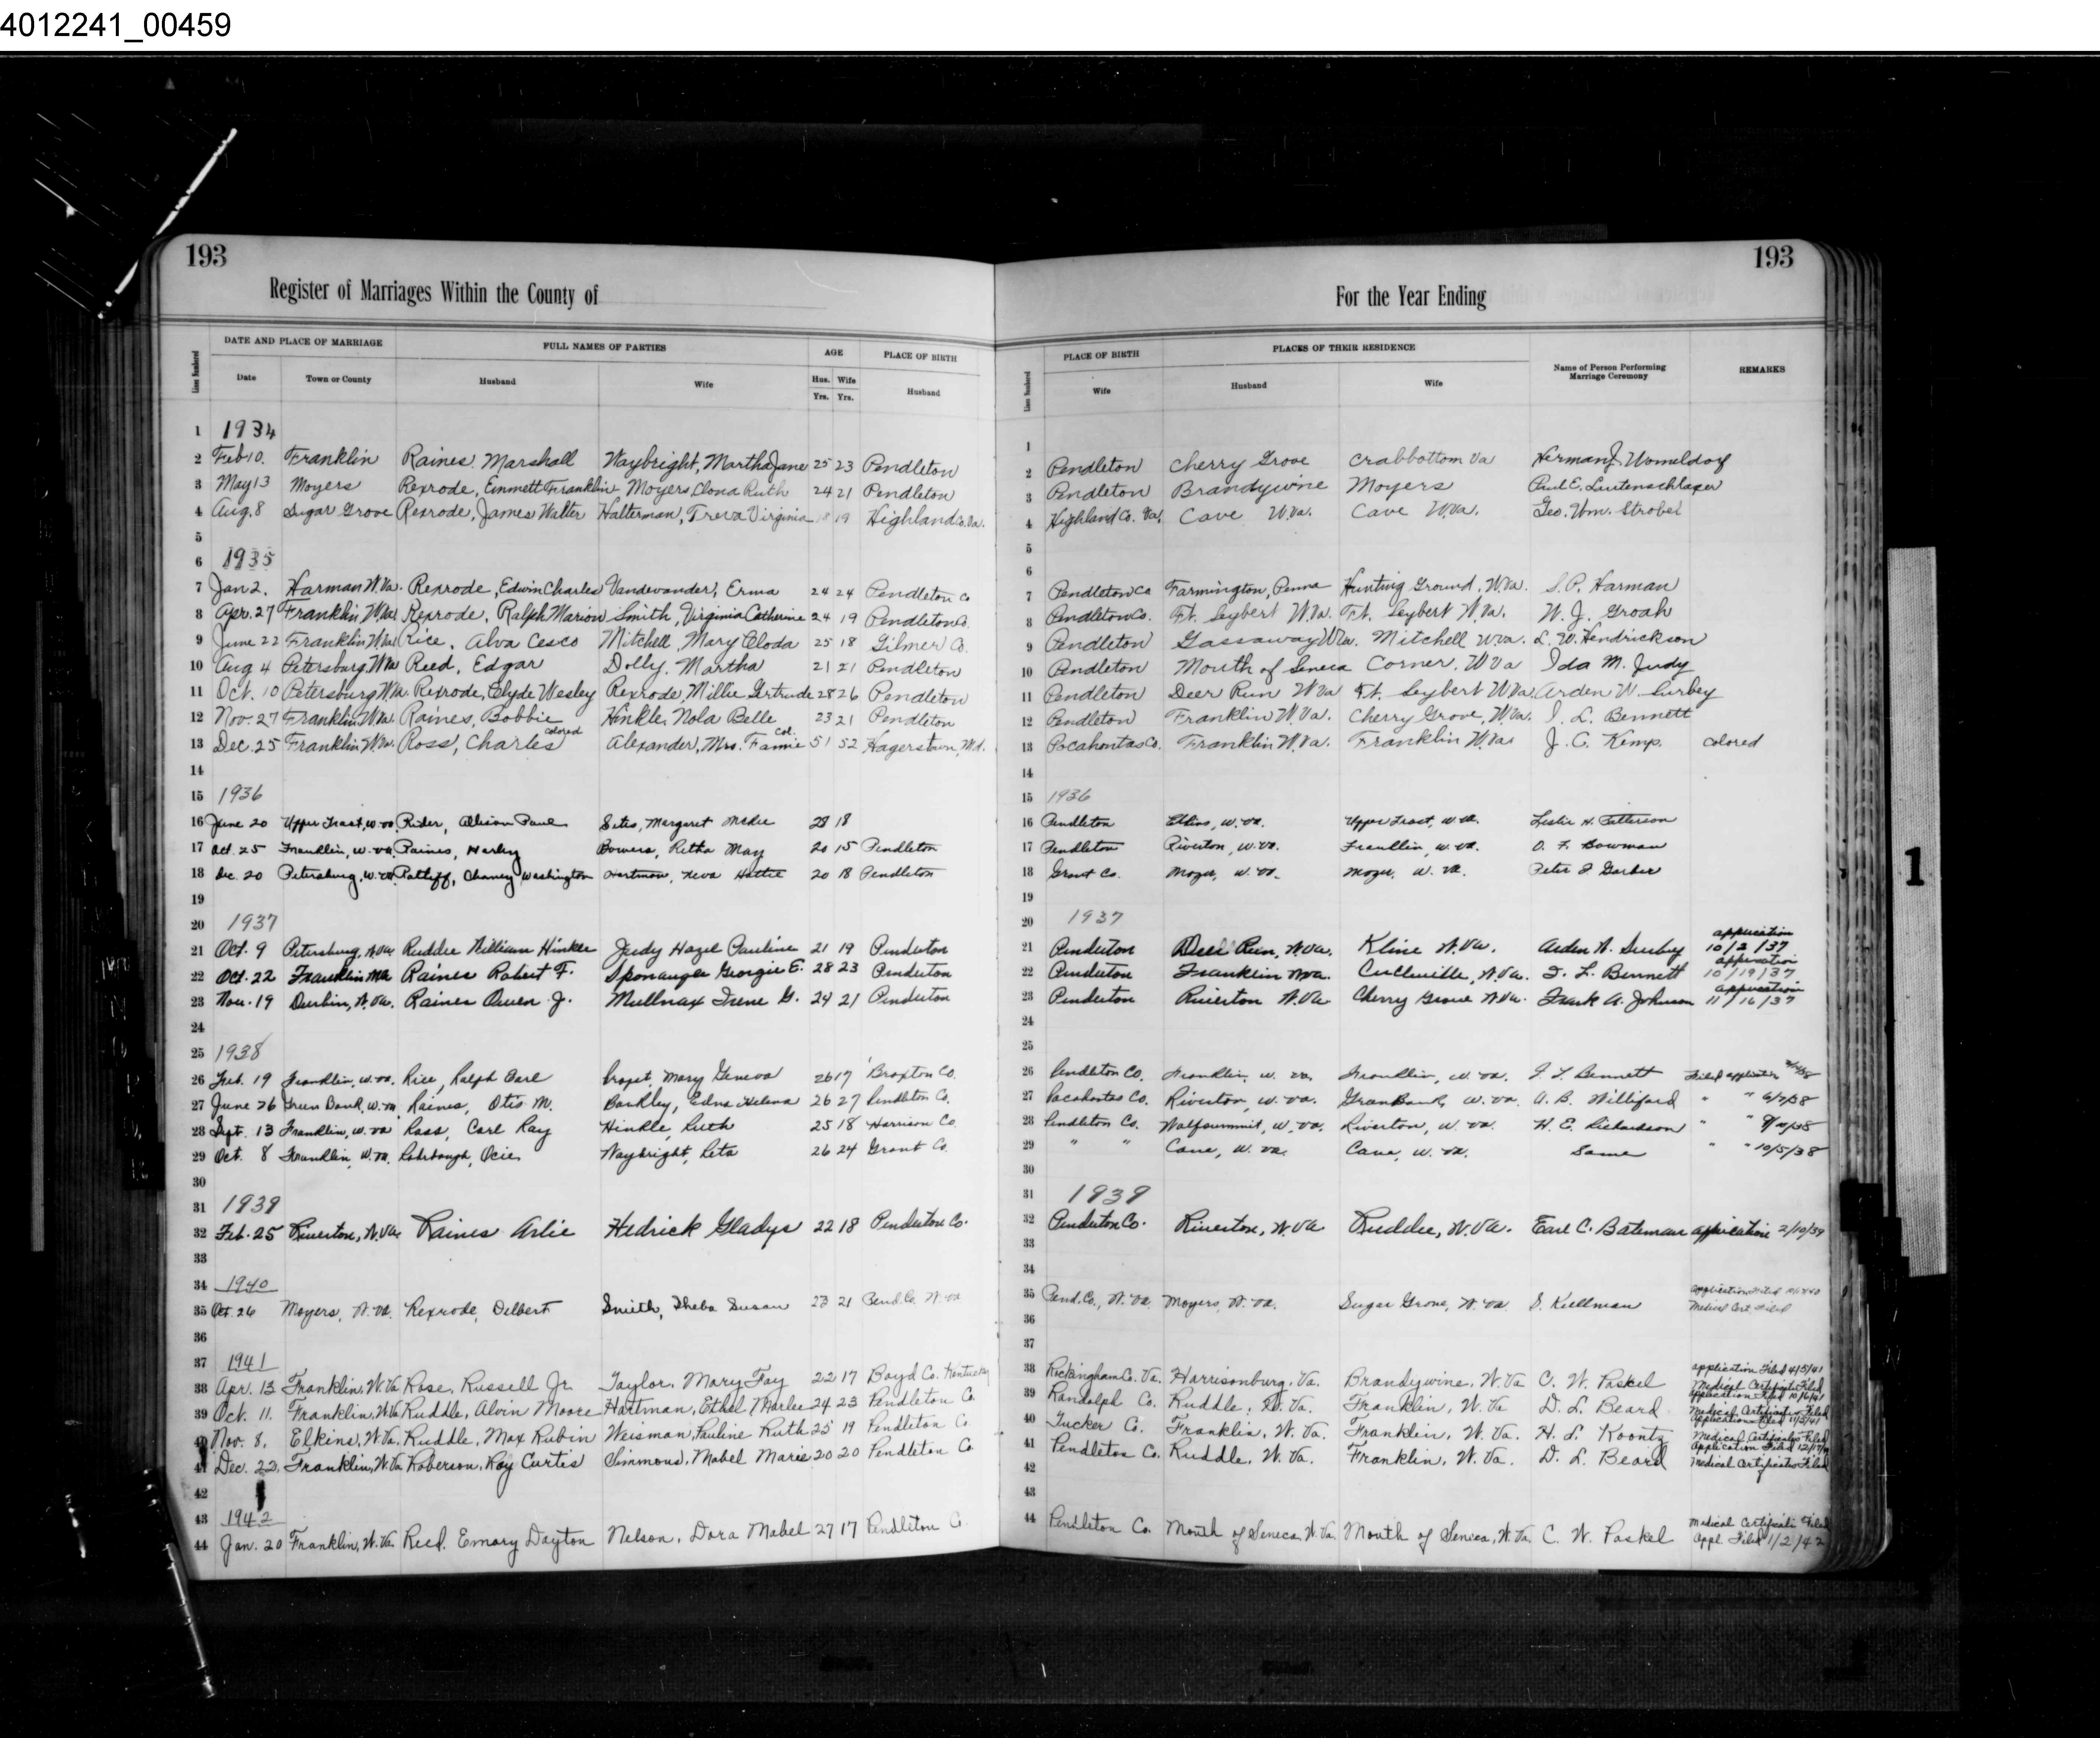 4012241_00459
193
193
Register of Marriages Within the County of
For the Year Ending
Lines Numbered
DATE AND PLACE OF MARRIAGE
FULL NAMES OF PARTIES
AGE
PLACE OF BIRTH
Lines Numbered
PLACE OF BIRTH
PLACES OF THEIR RESIDENCE
Name of Person Performing Marriage Ceremony
REMARKS
Date Town or County Husband Wife Hus. Yrs. Wife Yrs. Husband
Wife Husband Wife
1 1934 1
2 Feb 10. Franklin Raines, Marshall Waybright, Martha Jane 25 23 Pendleton 2 Pendleton Cherry Grove Crabbottom Va Herman J. Womeldorf
3 May 13 Moyers Rexrode, Emmett Franklin Moyers, Ruth 24 21 Pendleton 3 Pendleton Brandywine Moyers Paul E. Lautenschlager
4 Aug. 8 Sugar Grove Rexrode, James Walter Halterman, Treva Virginia 19 Highland Co. Va. 4 Highland Co. Va. Cave W.Va. Cave W.Va. Geo. Wm. Strobel
5 5
6 1935 6
7 Jan 2. Harman W.Va. Rexrode, Edwin Charles Vandevander, Erma 24 24 Pendleton Co 7 Pendleton Co Farmington, Penna Hunting Ground, W.Va. S.P. Harman
8 Apr. 27 Franklin, W.Va. Rexrode, Ralph Marion Smith, Virginia Catherine 24 19 Pendleton Co. 8 Pendleton Co. Ft. Seybert W.Va. Ft. Seybert W.Va. W. J. Groah
9 June 22 Franklin, W.Va. Rice, Alva Cesco Mitchell, Mary Cloda 25 18 Gilmer Co. 9 Pendleton Gassaway W.Va. Mitchell W.Va. L. W. Hendrickson
10 Aug 4 Petersburg, W.Va Reed, Edgar Dolly, Martha 21 21 Pendleton 10 Pendleton Mouth of Seneca Corner, W Va Ida M. Judy
11 Oct. 10 Petersburg W.Va. Rexrode, Clyde Wesley Rexrode, Millie Gertrude 28 26 Pendleton 11 Pendleton Deer Run W Va Ft. Seybert W Va Arden W. Curbey
12 Nov. 27 Franklin, W.Va. Raines, Bobbie Hinkle, Nola Belle 23 21 Pendleton 12 Pendleton Franklin W.Va. Cherry Grove, W.Va. I. L. Bennett
13 Dec. 25 Franklin, W.Va. Ross, Charles colored Alexander, Mrs. Fannie Col. 51 52 Hagerstown, Md. 13 Pocahontas Co. Franklin W.Va. Franklin W.Va. J. C. Kemp. colored
14 14
15 1936 15 1936
16 June 20 Upper Tract, W.Va. Rider, Allison Paul Sites, Margaret McKee 23 18 16 Pendleton Elkins, W.Va. Upper Tract, W.Va. Leslie H. Patterson
17 Oct. 25 Franklin, W.Va. Raines, Harley Bowers, Retha May 20 15 Pendleton 17 Pendleton Riverton, W.Va. Franklin, W.Va. O. F. Bowman
18 Dec. 20 Petersburg, W.Va. Ratliff, Chaney Washington Hartman, Neva Hattie 20 18 Pendleton 18 Grant Co. Moyer, W.Va. Moyer, W.Va. Peter I. Garber
19 19
20 1937 20 1937
21 Oct. 9 Petersburg, W.Va. Ruddle William Hinkle Judy Hazel Pauline 21 19 Pendleton 21 Pendleton Deer Run, W.Va. Kline W.Va. Arden W. application 10/2/37
22 Oct. 22 Franklin W.Va Raines Robert F. Sponaugle Georgie E. 28 23 Pendleton 22 Pendleton Franklin W.Va. Circleville, W.Va. I. L. Bennett application 10/19/37
23 Nov. 19 Durbin, W.Va. Raines Owen J. Mullnax Irene G. 24 21 Pendleton 23 Pendleton Riverton W.Va. Cherry Grove W.Va. Frank A. Johnson application 11/16/37
24 24
25 1938 25
26 Feb. 19 Franklin, W.Va. Rice, Ralph Earl Propst, Mary Geneva 26 17 Braxton Co. 26 Pendleton Co. Franklin, W.Va. Franklin, W.Va. I. L. Bennett Filed application
27 June 26 Green Bank, W.Va. Raines, Otis M. Barkley, Edna Helena 26 27 Pendleton Co. 27 Pocahontas Co. Riverton, W.Va. Green Bank, W.Va. A. B. Williford " " 6/7/38
28 Sept. 13 Franklin, W.Va Ross, Carl Ray Hinkle, Ruth 25 18 Harrison Co. 28 Pendleton Co. Wolfsummit, W.Va. Riverton, W.Va. H. E. Richardson " "
29 Oct. 8 Franklin, W.Va. Rohrbaugh, Ocie Waybright, Leta 26 24 Grant Co. 29 " " Cave, W.Va. Cave, W.Va. Same " " 10/5/38
30 30
31 1939 31 1939
32 Feb. 25 Riverton, W.Va. Raines Arlie Hedrick Gladys 22 18 Pendleton Co. 32 Pendleton Co. Riverton, W.Va Ruddle, W.Va. Earl C. Bateman application 2/10/39
33 33
34 1940 34
35 Oct. 26 Moyers, W.Va. Rexrode, Delbert Smith, Theba Susan 23 21 Pend. Co. W.Va 35 Pend. Co., W.Va. Moyers, W.Va. Sugar Grove, W.Va. S. Kullman application filed Medical Cert. Filed
36 36
37 1941 37
38 Apr. 13 Franklin, W.Va Rose, Russell Jr. Taylor, Mary Fay 22 17 Boyd Co. Kentucky 38 Rockingham Co. Va. Harrisonburg, Va. Brandywine, W.Va C. W. Paskel application Filed 4/5/41 Medical Certificate Filed
39 Oct. 11. Franklin, W.Va Ruddle, Alvin Moore Hartman, Ethel Marlee 24 23 Pendleton Co 39 Randolph Co. Ruddle, W.Va. Franklin, W.Va D. L. Beard application Filed 10/6/41 Medical Certificate Filed
40 Nov. 8, Elkins, W.Va. Ruddle, Max Rubin Weisman, Pauline Ruth 25 19 Pendleton Co 40 Tucker Co. Franklin, W.Va. Franklin, W.Va. H. L. Koontz Application Filed 11/3/41 Medical Certificate Filed
41 Dec. 22, Franklin, W.Va Roberson, Roy Curtis Simmons, Mabel Marie 20 20 Pendleton Co 41 Pendleton Co. Ruddle, W.Va. Franklin, W.Va. D. L. Beard Application Filed Medical Certificate Filed
42 42
43 1942 43
44 Jan. 20 Franklin, W.Va. Reed, Emory Dayton Nelson, Dora Mabel 27 17 Pendleton Co 44 Pendleton Co. Mouth of Seneca, W.Va. Mouth of Seneca, W.Va. C. W. Paskel Medical Certificate Filed Appl. Filed 1/2/42
1